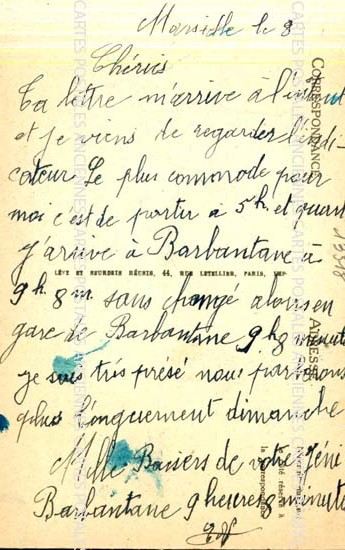 Marseille le 8
Chéries
Ta lettre m'arrive à l'instant
et je viens de regarder l'indi-
cateur Le plus commode pour
moi c'est de partir a 5h et quart
j'arrive à Barbantane à
LÉVY ET NEURDEIN RÉUNIS, 44, RUE LETELLIER, PARIS, IMP
9h. 8m. sans changé alors en
gare de Barbantane 9h 8 minute
je suis très présé nous parlerons
plus longuement dimanche
Mille Baisers de votre
Barbantane 9 heures 8 minute
CORRESPONDANCE
ADRESSE
réservé à
la correspondance
CARTES POSTALES ANCIENNES